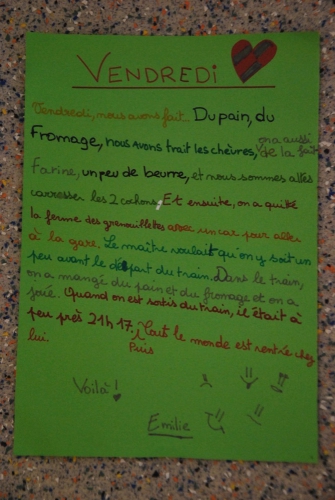 VENDREDI
Vendredi, nous avons fait... Du pain, du
Fromage, nous avons trait les chèvres, on a aussi fait
de la
farine, un peu de beurre, et nous sommes allés
caresser les 2 cochons. Et ensuite, on a quitté
la ferme des grenouillettes avec un car pour aller
à la gare. Le maître voulait qu'on y soit un
peu avant le départ du train. Dans le train,
on a mangé du pain et du fromage et on a
joué. Quand on est sortis du train, il était à
peu près 21h17. Puis tout le monde est rentré chez
lui.
Voilà!
Emilie